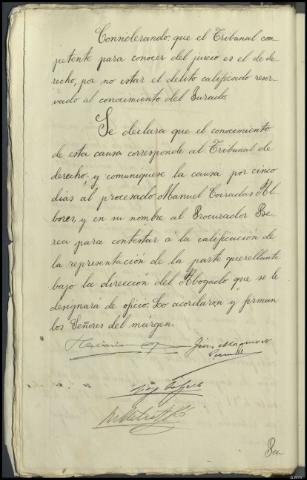 Considerando: que el Tribunal com
petente para conocer del juicio es el de de
recho, por no estar el delito calificado reser
vado al conocimiento del Jurado.
Se declara que el conocimiento
de esta causa corresponde al Tribunal de
derecho, y comuníquese la causa por cinco
días al procesado Manuel
y en su nombre al Procurador
para contestar á la calificación de
la representación de la parte querellante
bajo la dirección del Abogado que se le
designará de oficio. Lo acordaron y firman
los Señores del márgen.